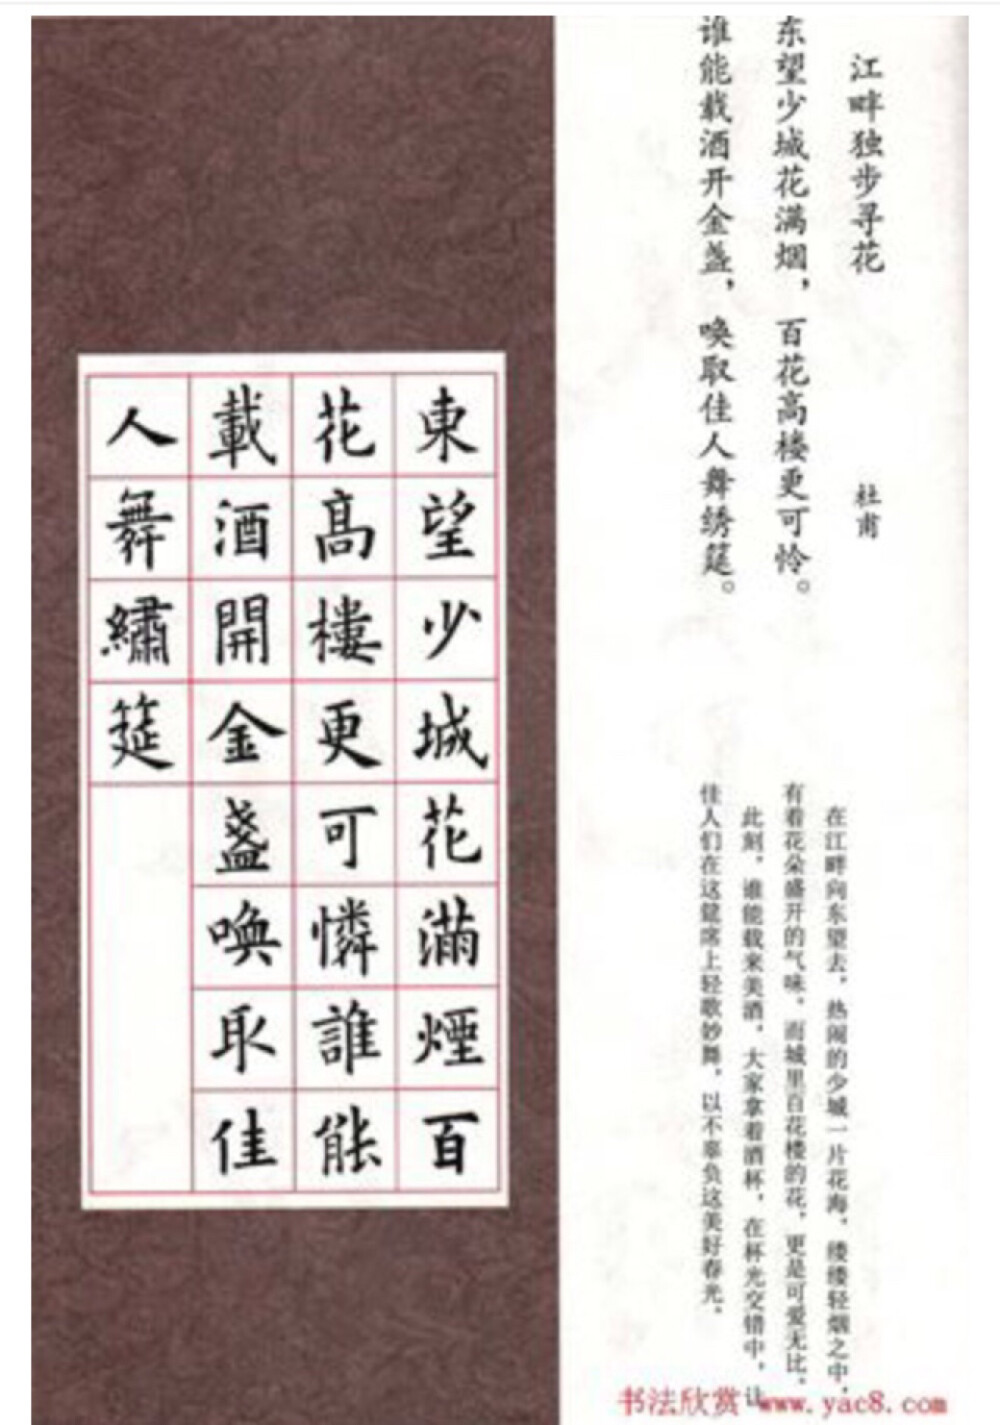 江畔独步寻花
杜甫
东望少城花满烟，百花高楼更可怜。
谁能载酒开金盏，唤取佳人舞绣筵。
在江畔向东望去，热闹的少城一片花海，缕缕轻烟之中，
有着花朵盛开的气味，而城里百花楼的花，更是可爱无比。
此刻，谁能载来美酒，大家拿着酒杯，在杯光交错中，让
佳人们在这筵席上轻歌妙舞，以不辜负这美好春光。
東望少城花滿煙百
花高樓更可憐誰能
載酒開金盞喚取佳
人舞繡筵
书法欣赏 www.yac8.com